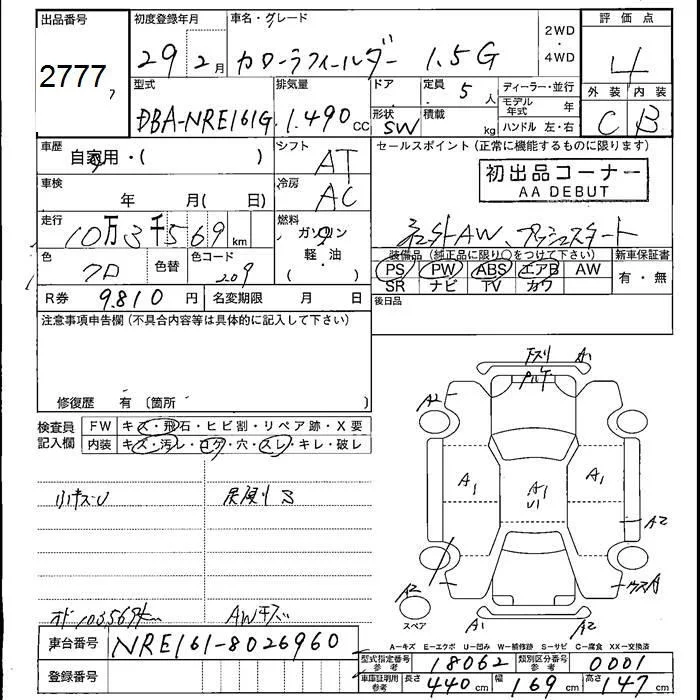 出品番号 初度登録年月 車名・グレード 評価点
2777 7 29 2月 カローラフィールダー 1.5G 2WD・4WD 4
型式 排気量 ドア 定員 5人 ディーラー・並行 外装 内装
DBA-NRE161G 1.490cc 形状 SW 積載 kg モデル年式 年 ハンドル 左・右 C B
車歴 自家用・( ) シフト AT セールスポイント(正常に機能するものに限ります)
車検 年 月( 日) 冷房 AC 初出品コーナー
AA DEBUT
走行 10万3千569km 燃料 ガソリン 軽油 ( ) 社外AW、プッシュスタート
色 クロ 色替 色コード 209 装備品(純正品に限り○をつけて下さい) 新車保証書
PS PW ABS エアB AW 有・無
SR ナビ TV カワ
R券 9.810円 名変期限 月 日 後日品
注意事項申告欄(不具合内容等は具体的に記入して下さい)
修復歴 有 〔箇所 〕
検査員記入欄 FW キズ・飛石・ヒビ割・リペア跡・X要
内装 キズ・汚レ・コゲ・穴・スレ・キレ・破レ
小キズU
AWキズ
下スリ A1
A2
A1 A1 U1 A1
A2
A2
スペア A1 A2
A-キズ E-エクボ U-凹み W-補修跡 S-サビ C-腐食 XX-交換済
車台番号 NRE161-8026960
型式指定番号 参考 18062 類別区分番号 参考 0001
登録番号 車庫証明用 参考 長さ 440cm 幅 169cm 高さ 147cm